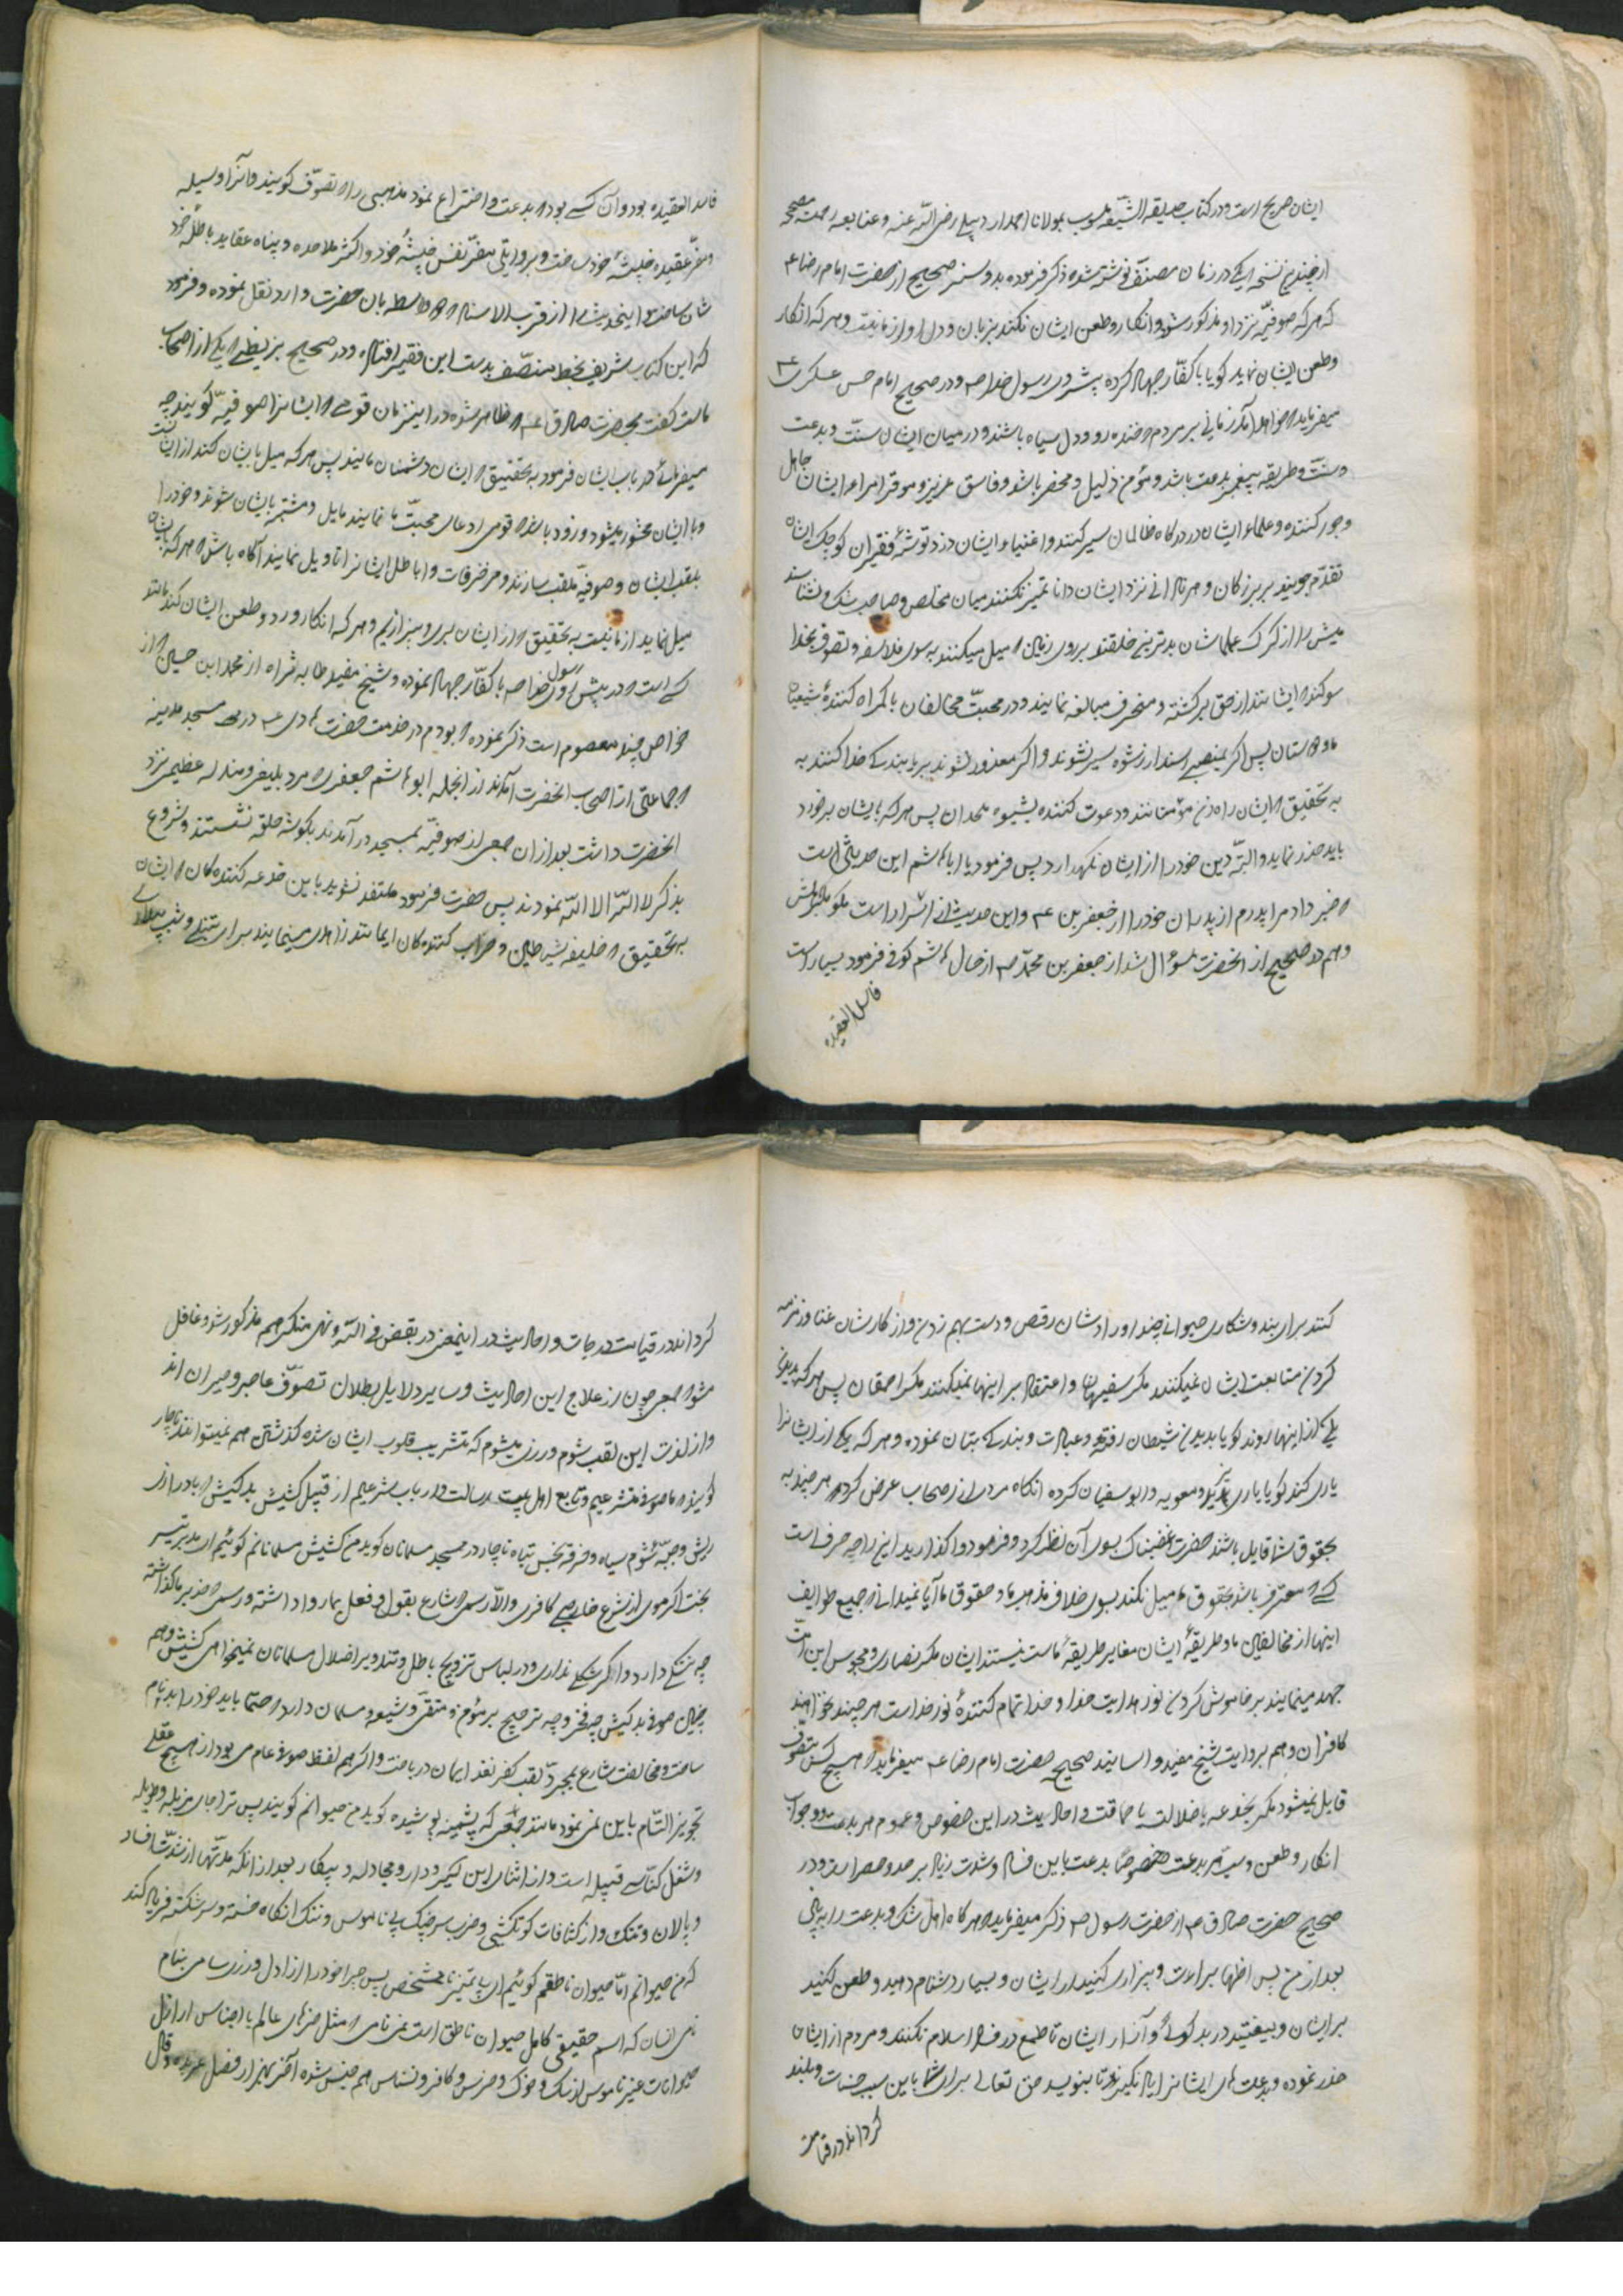 ایشان صریح است و در کتاب حدیقة الشیعة منسوب بمولانا احمد اردبیلی رضی الله عنه و عنا بعد رحمته مصحح
از چندین نسخه ایکه در زمان مصنف نوشته شده ذکر فرموده بدو سند صحیح از حضرت امام رضا ع
که هر که صوفیه نزد او مذکور شود و انکار و طعن ایشان نکند بزبان و دل او از ما نیست و هر که انکار
و طعن ایشان نماید کویا با کفار جهاد کرده پیش روی رسول خدا ص و در صحیح امام حسن عسکری ع
میفرماید خواهد آمد زمانی بر مردم خنده رو و دل سیاه باشند و در میان ایشان سنت و بدعت
و سنت و طریقه پیغمبر بدعت باشد و مؤمن ذلیل و محقر باشد و فاسق عزیز و موقر امراء ایشان جاهل
و جور کننده و علماء ایشان در درکاه ظالمان سیر کنند و اغنیاء ایشان دزد توشهٔ فقیران کوچک ایشان
تقدم جویند بر بزرکان و هر نادانی نزد ایشان دانا تمیز نکنند میان مخلص و صاحب شک و نشناسند
میش را از کرک علماشان بدترین خلقند بر روی زمین میل میکنند بسوی فلاسفه و تصوف بخدا
سوکند ایشانند از حق برکشته و منحرف مبالغه نمایند و در محبت مخالفان با کمراه کنندهٔ شیعیان
ما و دوستان پس اکر بمنصبی رسند از رشوه سیر نشوند و اکر معذور شوند بریا بندکی خدا کنند به
به تحقیق ایشان راه زن مؤمنانند و دعوت کننده بشیوه ملحدان پس هر که بایشان برخورد
باید حذر نماید و البته دین خود را از ایشان نکهدارد پس فرمود یا اباهاشم این حدیثی است
خبر داد مرا پدرم از پدران خود را از جعفر بن ع و این حدیث از اسرار است مکو مکر باهلش
و هم در صحیح از آنحضرت سؤال شد از جعفر بن محمد ص از حال هاشم کوفی فرمود بسیار است
فاسد العقیده
فاسد العقیده بود و آن کسی بود بدعت و اختراع نمود مذهبی را تصوف کویند و آنرا وسیله
و مفر عقیده خبیثهٔ خود ساخت و بروایتی مفر نفس خبیثهٔ خود و اکثر ملاحده و پناه عقاید باطلهٔ خود
شان ساخت و اینحدیث را از قرب الاسناد واسطه بان حضرت دارد نقل نموده و فرمود
که این کتاب شریف بخط مصنف بدست این فقیر افتاد و در صحیح بزنطی یکی از اصحاب
ماست کفت بحضرت صادق ع ظاهر شده در اینزمان قومی ایشانرا صوفیه کویند چه
میفرمائی در باب ایشان فرمود به تحقیق ایشان دشمنان مایند پس هر که میل بایشان کند از ایشانست
و با ایشان محشور میشود و زود باشد قومی ادعای محبت ما نمایند مایل و مشتبه بایشان شوند و خود را
بلقب ایشان و صوفیه ملقب سازند و مزخرفات و اباطل ایشانرا تاویل نمایند آکاه باش هر که بایشان
میل نماید از ما نیست به تحقیق از ایشان بری و بیزاریم و هر که انکار و رد و طعن ایشان کند مانند
کسی است در پیش روی رسول خدا ص با کفار جهاد نموده و شیخ مفید طاب ثراه از محمد ابن حسین از
خواص چند معصوم است ذکر نموده بودم در خدمت حضرت هادی ع در مسجد مدینه
جماعتی از اصحاب آنحضرت آمدند از انجمله ابو هاشم جعفری مرد بلیغ و منزله عظیمی نزد
آنحضرت داشت بعد از ان جمعی از صوفیه بمسجد در آمدند بکوشه حلقه نشستند و شروع
بذکر لا اله الا الله نمودند پس حضرت فرمود ملتفت نشوید باین خدعه کننده کان ایشان
به تحقیق خلیفه شیاطین و خراب کننده کان ایمانند زاهدی مینمایند برای تن و شب بیداری
کنند برای بند و شکاری حیوانی چند اورادشان رقص و دست بهم زدن و اذکارشان غنا و زمزمه
کردن متابعت ایشان نمیکنند مکر سفیهان و اعتقاد بر اینها نمیکنند مکر احمقان پس هر که بدیدن
یکی از اینها رود کویا بدیدن شیطان رفته و عبادت و بندکی بتان نموده و هر که یکی از ایشانرا
یاری کند کویا یاری یزید و معویه و ابوسفیان کرده انکاه مردی از اصحاب عرض کرد هر چند به
بحقوق شما قایل باشند حضرت غضبناک بسوی آن نظر کرد و فرمود واکذارید این را چه حرف است
کسی معترف باشد بحقوق ما میل نکند بسوی خلاف مذهب ما و حقوق ما آیا نمیدانی جمیع طوایف
اینها از مخالفین ما و طریقهٔ ایشان مغایر طریقهٔ ماست نیستند ایشان مکر نصاری و مجوس این امت
جهد مینمایند بر خاموش کردن نور هدایت خدا و خدا تمام کنندهٔ نور خداست هر چند نخواهند
کافران و هم بروایت شیخ مفید و اسانید صحیح حضرت امام رضا ع میفرماید هیچ کس بتصوف
قایل نمیشود مکر بخدعه یا ضلالت یا حماقت و احادیث در این خصوص و عموم هر بدعت و وجوب
انکار و طعن و سب هر بدعت خصوصا بدعت باین فساد و شدت زیاد بر حد و حصر است و در
صحیح حضرت صادق ع از حضرت رسول ص ذکر میفرماید هر کاه اهل شک و بدعت را به بینی
بعد از من پس اظهار براءت و بیزاری کنید از ایشان و بسیار دشنام دهید و طعن کنید
بر ایشان و بیفتید در بدکوئی و آزار ایشان تا طمع در فساد اسلام نکنند و مردم از ایشان
حذر نموده و بدعت های ایشانرا یاد نکیرند تا بنویسد حق تعالی برای شما باین سبب حسنات و بلند
کرداند در قیامت
کرداند در قیامت درجات و احادیث در اینمعنی در بغض فی الله و نهی منکر هم مذکور شد و غافل
مشو جمعی چون از علاج این احادیث و سایر دلایل بطلان تصوف عاجز و حیران اند
و از لذت این لقب شوم ورزی میشوم که تشریب قلوب ایشان شده کذشتن هم نمیتوانند ناچار
کویند ما صوفی متشرعیم و تابع اهل بیت رسالت و ارباب شرعیم از قبیل کشیش بدکیش با درازی
ریش و جبهٔ شوم سیاه و خرقه نجس تباه ناچار در مسجد مسلمانان کوید من کشیش مسلمانم کوئیم ای بد تدبیر
بخت اکر موی از شرع خارجی کافری و الا رسمی شارع بقول و فعل بما روا داشته و رسمی حذر بر ما کذاشته
چه ننکی دارد و اکر شکی نداری و در لباس ترویج باطل و تدویر اضلال مسلمانان نمیخواهی کشیش و هم
چنین صوفی بدکیش چه فخر و چه ترجیح بر مؤمن و متقی و شیعه و مسلمان دارد حتما باید خود را بدنام
ساخت و مخالفت شارع بمجرد لقب کفر نقد ایمان در باخت و اکر هم لفظ صوفی عام می بود از هیچ عقلی
تجویز التیام باین نمی نمود مانند جمعی که پشمینه پوشیده کوید من حیوانم کویند پس ترا جای مزبله و طویله
و شغل کناسی قبیله است و از اثنای این کیر و دار و مجادله و پیکار بعد از آنکه مدتها از شدت فساد
و پالان و تنک و از کثافات کوتکشی و ضرب سرچنک بی ناموس و ننک انکاه خسته و سرشکسته فریاد کند
که من حیوانم اما حیوان ناطقم کوئیم ای بی تمیز نامشخص پس چرا خود را از ازل و روز رسامی بنام
نامی انسان که اسم حقیقی کامل حیوان ناطق است نمی نامی مثل خرهای عالم با اجناس اراذل
حیوانات غیر ناموس از سک و خوک و خرس و کافر و نسناس هم جنس شده آخر بهزار فصل عربده و قال